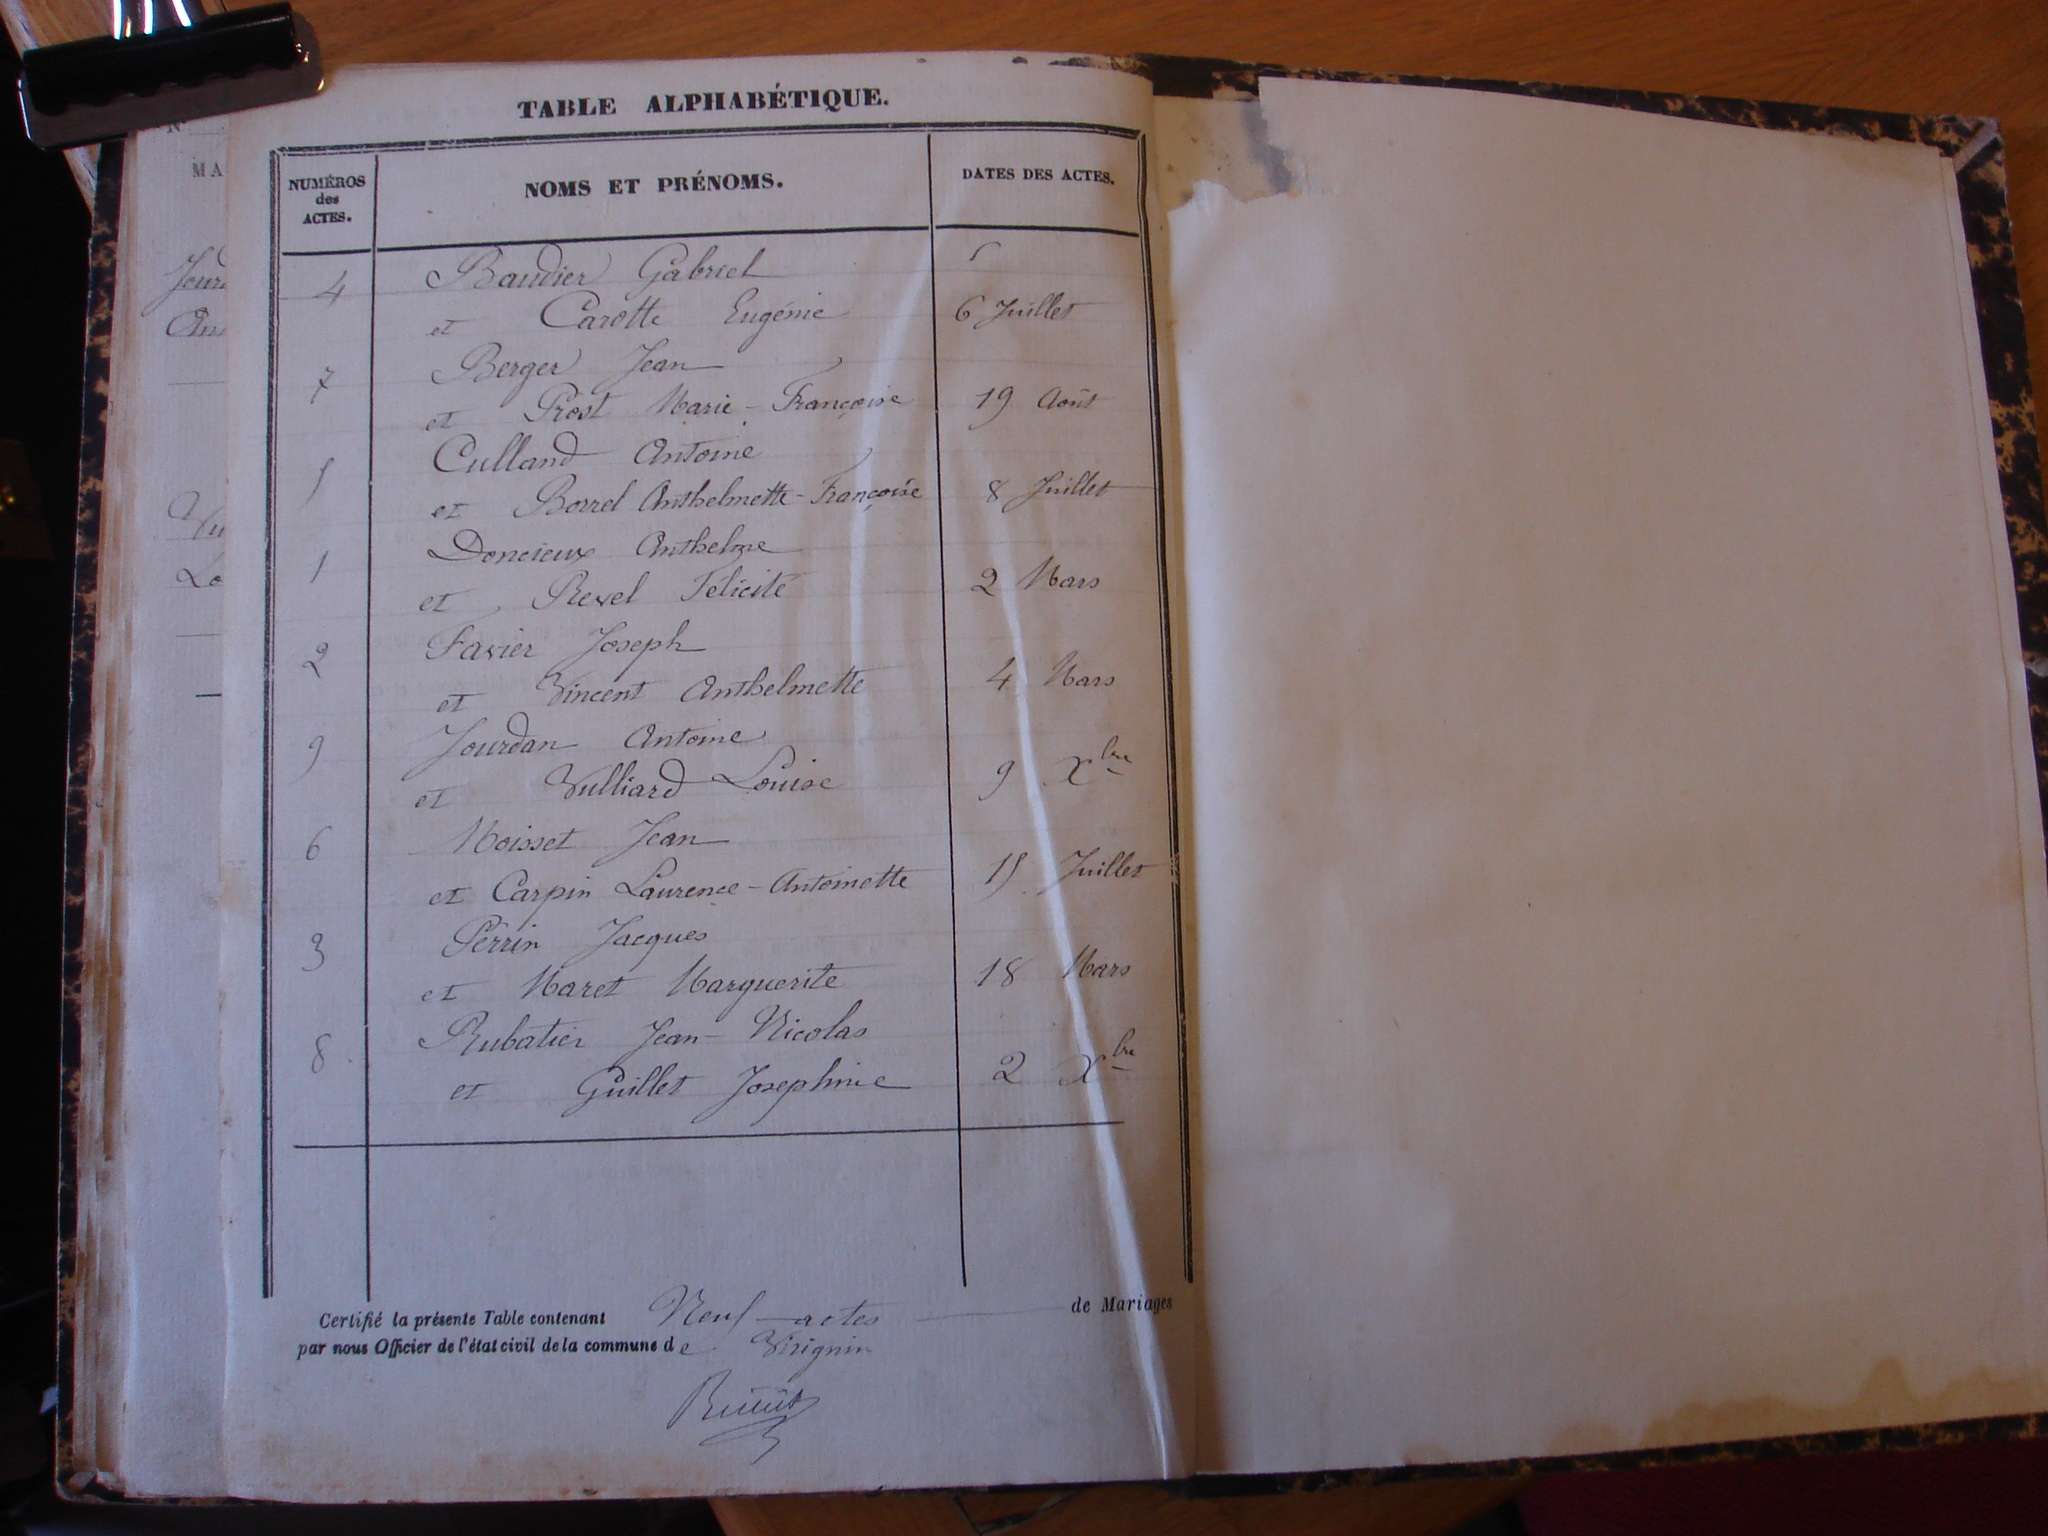 TABLE ALPHABÉTIQUE.
NUMÉROS des ACTES.
NOMS ET PRÉNOMS.
DATES DES ACTES.
4 Baudier Gabriel
et Carotte Eugénie 6 Juillet
7 Berger Jean
et Prost Marie-Françoise 19 Août
5 Culland Antoine
et Borrel Anthelmette-Françoise 8 Juillet
1 Doncieux Anthelme
et Revel Félicité 2 Mars
2 Favier Joseph
et Vincent Anthelmette 4 Mars
9 Jourdan Antoine
et Vulliard Louise 9 Xbre
6 Moisset Jean
et Carpin Laurence-Antoinette 15 Juillet
3 Perrin Jacques
et Maret Marguerite 18 Mars
8 Rubatier Jean-Nicolas
et Guillet Josephine 2 Xbre
Certifié la présente Table contenant Neuf actes de Mariages
par nous Officier de l'état civil de la commune de Virignin